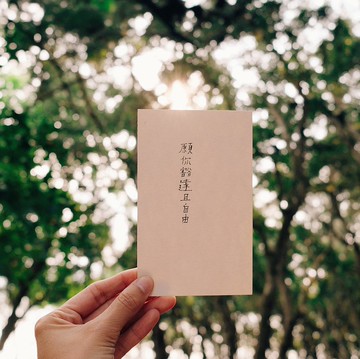 願你豁達且自由